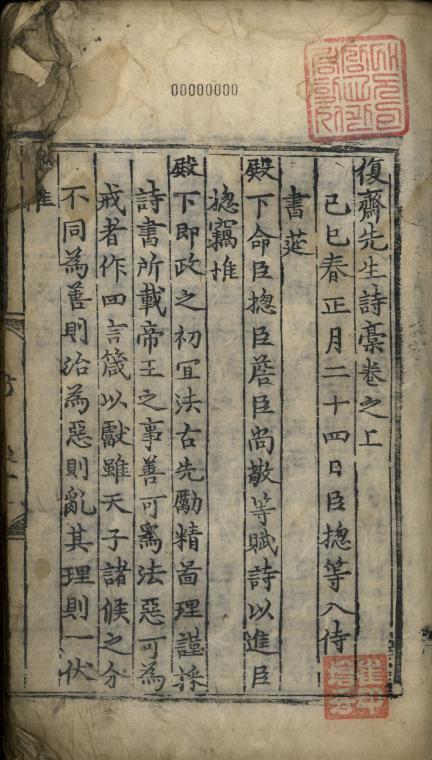 00000000
復齋先生詩藁卷之上
己巳春正月二十四日臣揔等入侍
書筵
殿下命臣揔臣磨臣尙敬等賦詩以進臣
揔竊惟
殿下即政之初冝法古先勵精啚理謹採
詩書所載帝王之事善可爲法惡可為
戒者作四言箴以獻雖天子諸侯之分
不同為善則治為惡則亂其理則一伏
惟